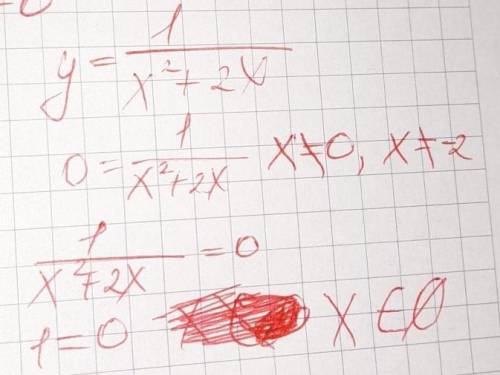 y = 1/(x² + 2x)
0 = 1/(x² + 2x) x ≠ 0, x ≠ -2
1/(x² + 2x) = 0
1 = 0 x ∈ ∅